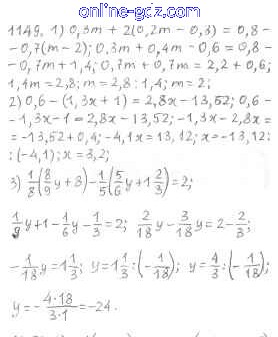 online-gdz.com
1149. 1) 0,3m + 2(0,2m - 0,3) = 0,8 -
- 0,7(m - 2); 0,3m + 0,4m - 0,6 = 0,8 -
- 0,7m + 1,4; 0,7m + 0,7m = 2,2 + 0,6;
1,4m = 2,8; m = 2,8 : 1,4; m = 2;
2) 0,6 - (1,3x + 1) = 2,8x - 13,52; 0,6 -
- 1,3x - 1 = 2,8x - 13,52; -1,3x - 2,8x =
= -13,52 + 0,4; -4,1x = 13,12; x = -13,12 :
: (-4,1); x = 3,2;
3) 1/8(8/9y + 8) - 1/5(5/6y + 1 2/3) = 2;
1/9y + 1 - 1/6y - 1/3 = 2; 2/18y - 3/18y = 2 - 2/3;
-1/18y = 1 1/3; y = 1 1/3 : (-1/18); y = 4/3 : (-1/18);
y = - 4·18/3·1 = -24.